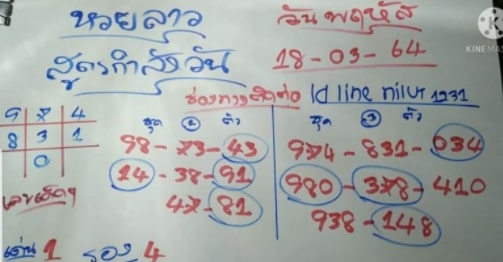 หวยลาว วันพฤหัส
สูตรกำลังวัน 18-03-64
ช่องทางติดต่อ Id line nilut 1231
9 7 4 ชุด 2 ตัว ชุด 3 ตัว
8 3 1 98-73-43 974-831-034
0 14-38-91 980-378-410
เลขเด็ดๆ 47-81 938-148
เด่น 1 รอง 4
KINEMAS